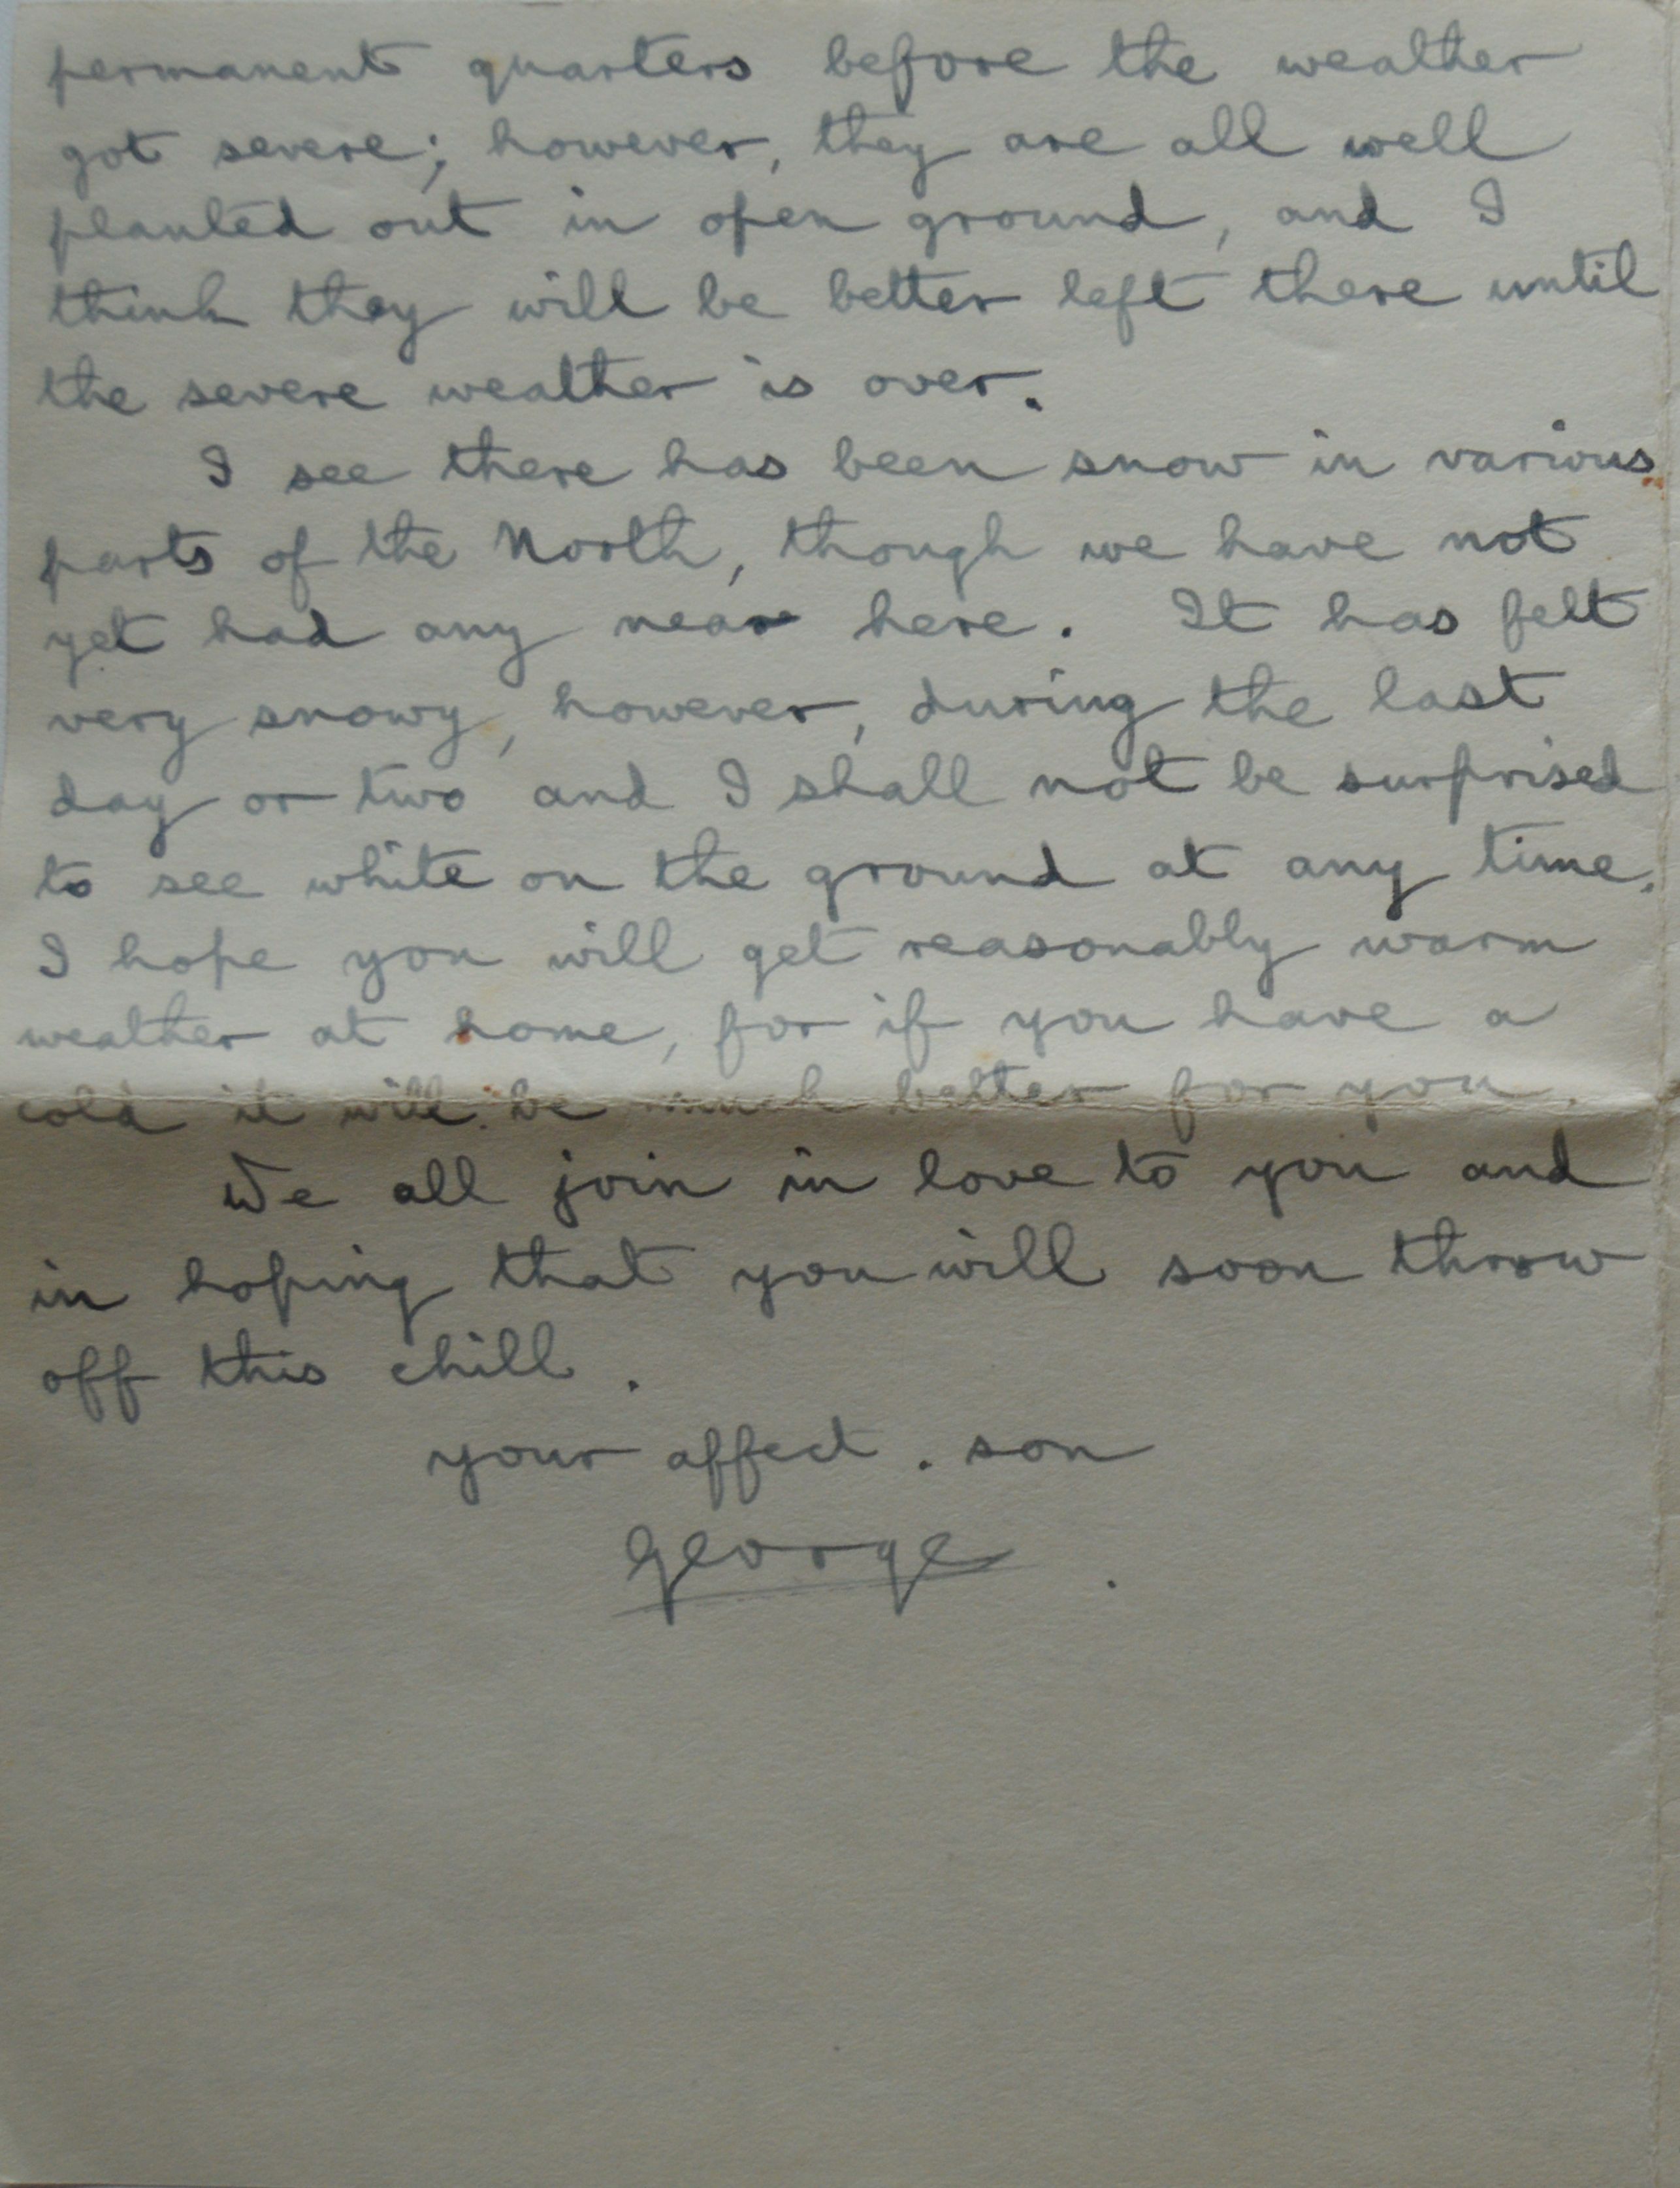 permanent quarters before the weather
got severe; however, they are all well
planted out in open ground, and I
think they will be better left there until
the severe weather is over.
I see there has been snow in various
parts of the North, though we have not
yet had any near here. It has felt
very snowy, however, during the last
day or two and I shall not be surprised
to see white on the ground at any time.
I hope you will get reasonably warm
weather at home, for if you have a
cold it will be much better for you.
We all join in love to you and
in hoping that you will soon throw
off this chill.
your affect. son
George